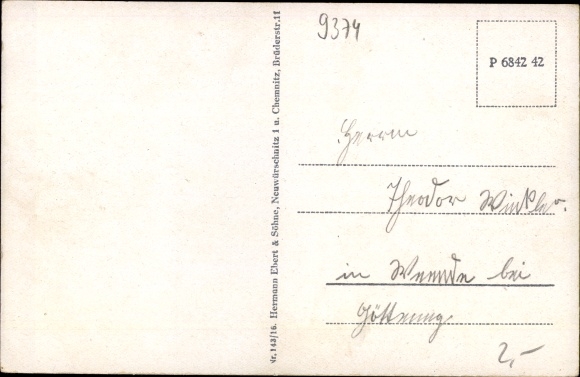 9374
P 6842 42
Nr. 143/16. Hermann Ebert & Söhne, Neuwürschnitz i u. Chemnitz, Brüderstr. 11
Herrn
Theodor Winkler.
in Weende bei
Göttingen
2,-